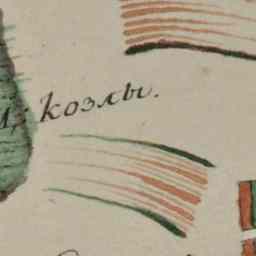 козлы.